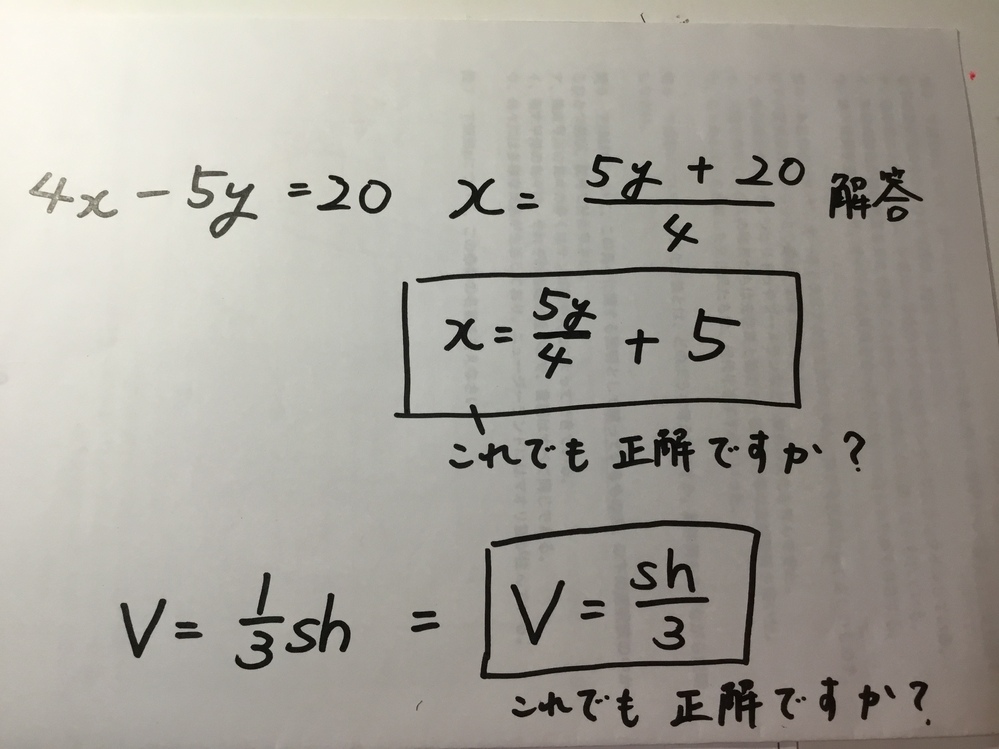 4x - 5y = 20 x = \frac{5y + 20}{4} 解答
x = \frac{5y}{4} + 5
これでも 正解ですか?
V = \frac{1}{3}sh = V = \frac{sh}{3}
これでも 正解ですか?